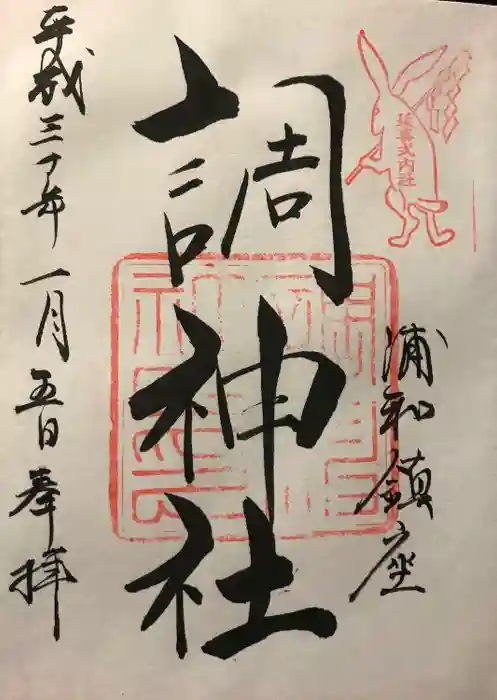 浦和鎮座
延喜式内社
調神社
平成三十年一月五日奉拝